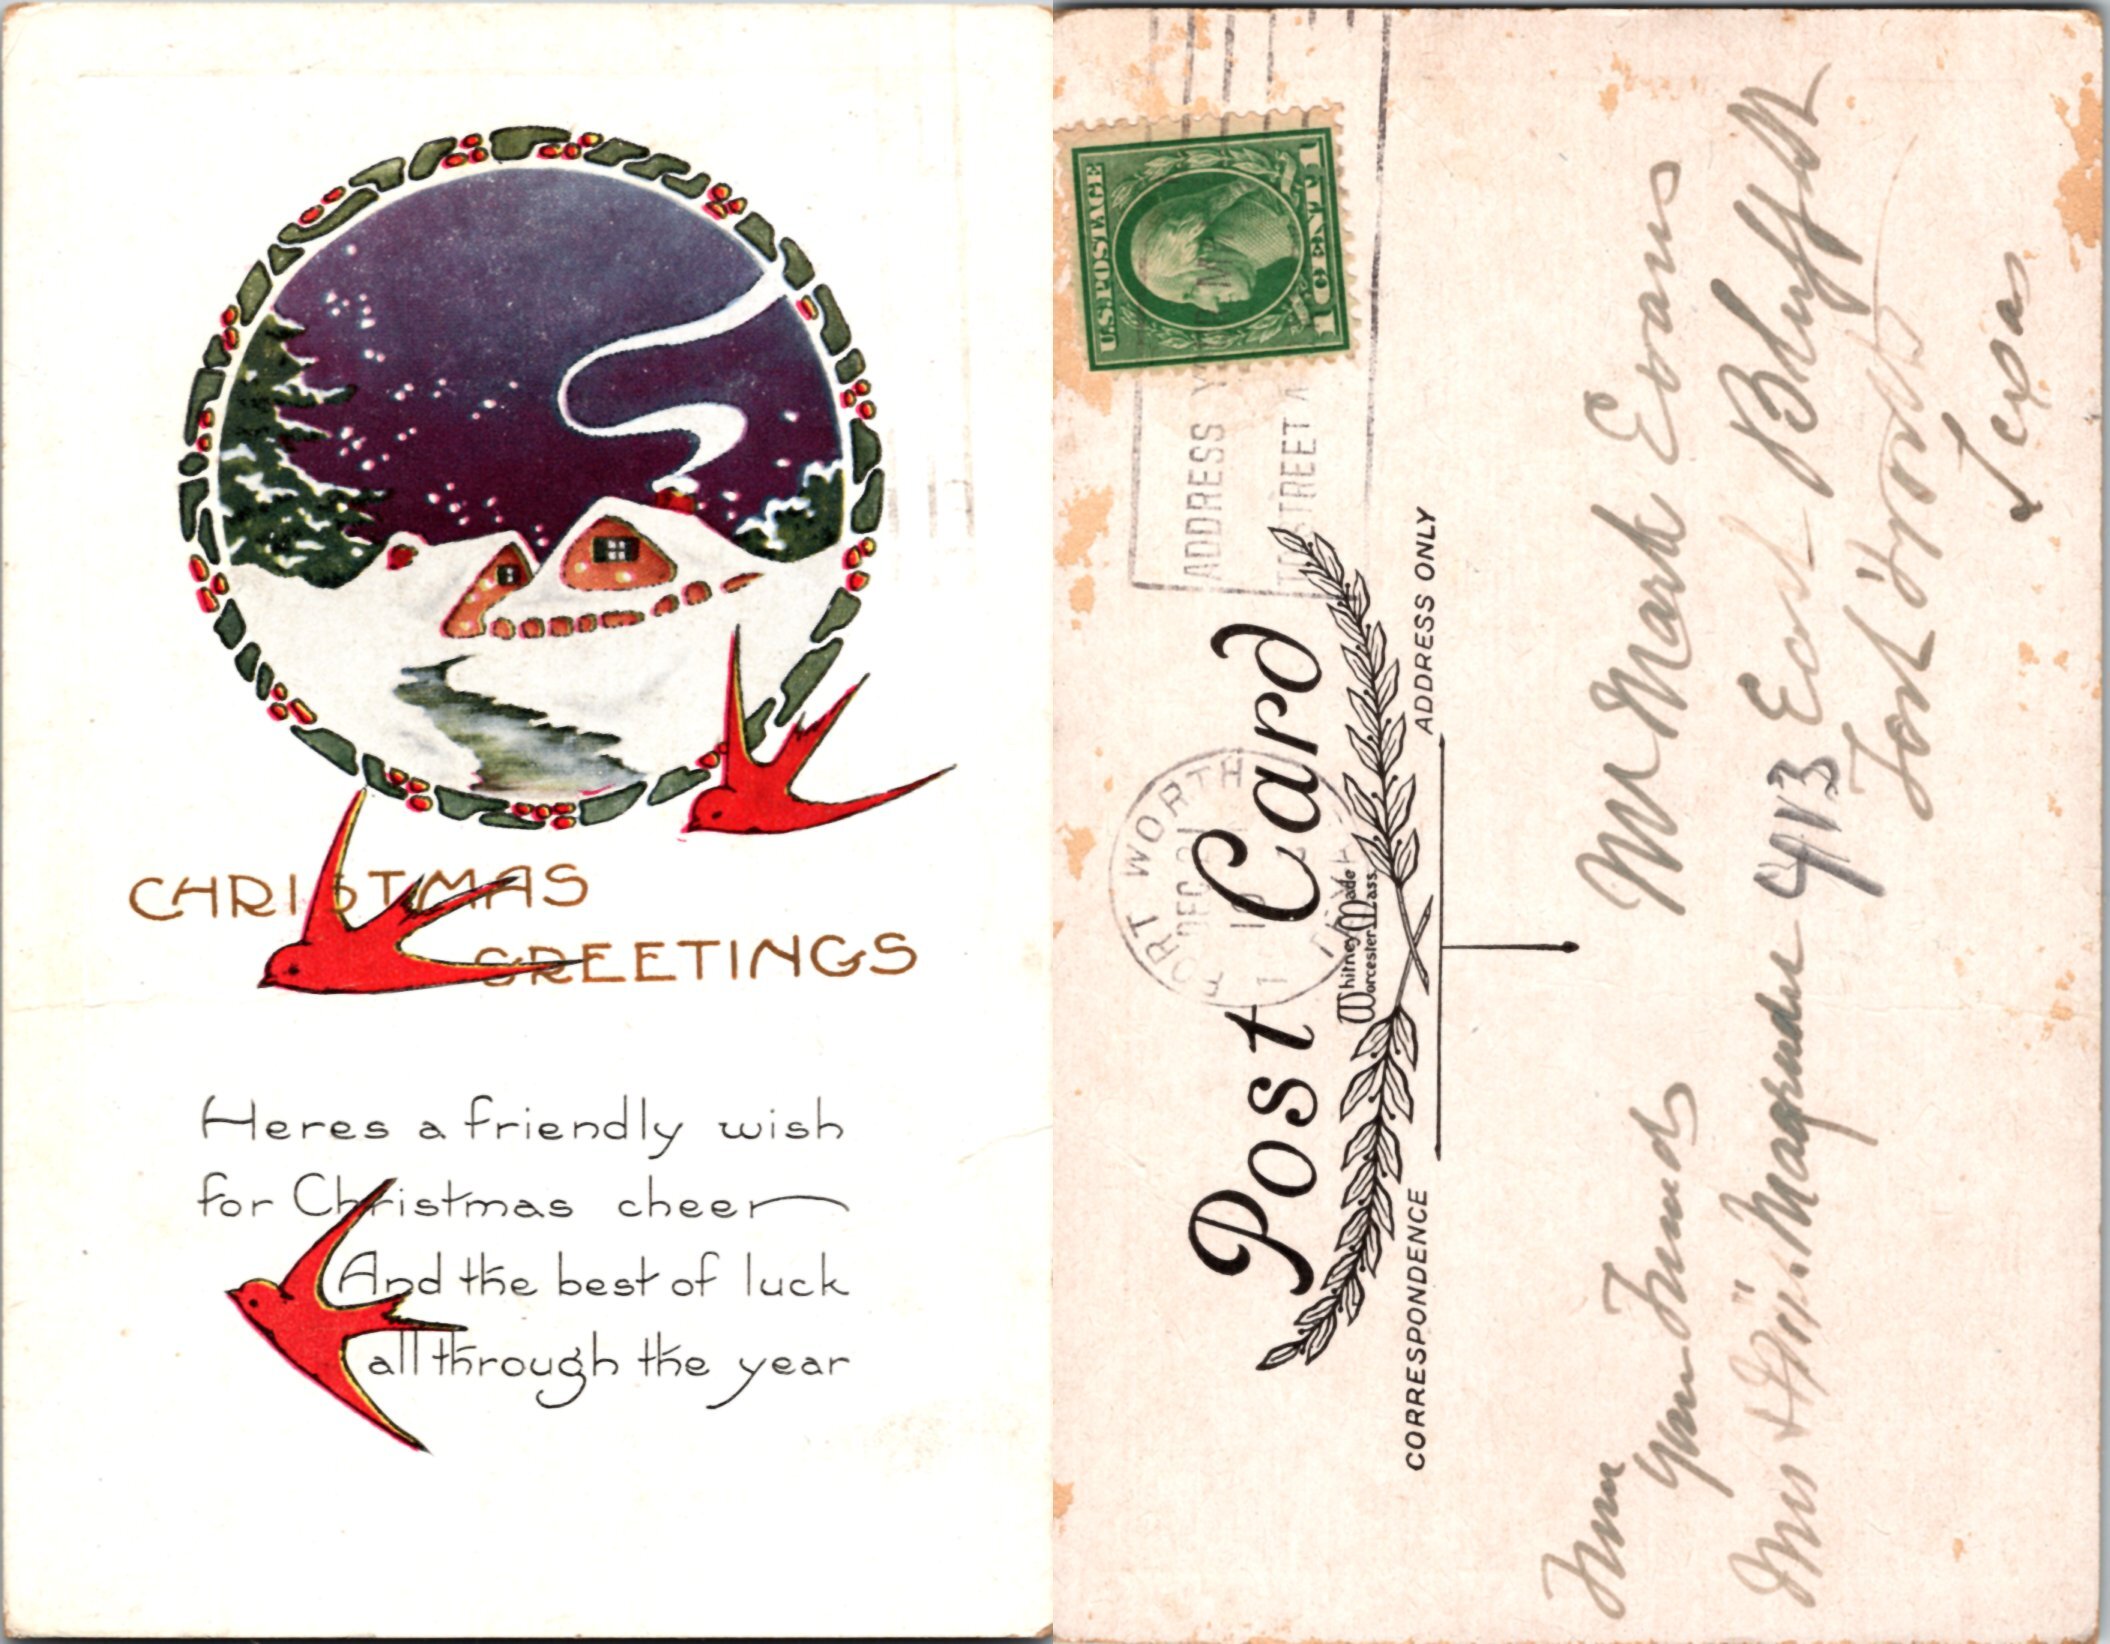 CHRISTMAS
GREETINGS
Heres a friendly wish
for Christmas cheer
And the best of luck
all through the year
U.S. POSTAGE
1 CENT 1
ADDRESS
TO STREET A
FORT WORTH
DEC 21
1
Post Card
Whitney Made
Worcester Mass.
CORRESPONDENCE
ADDRESS ONLY
Mr Mark Evans
913 East Bluff St
Fort Worth
Texas
From
your Friend
Magruder